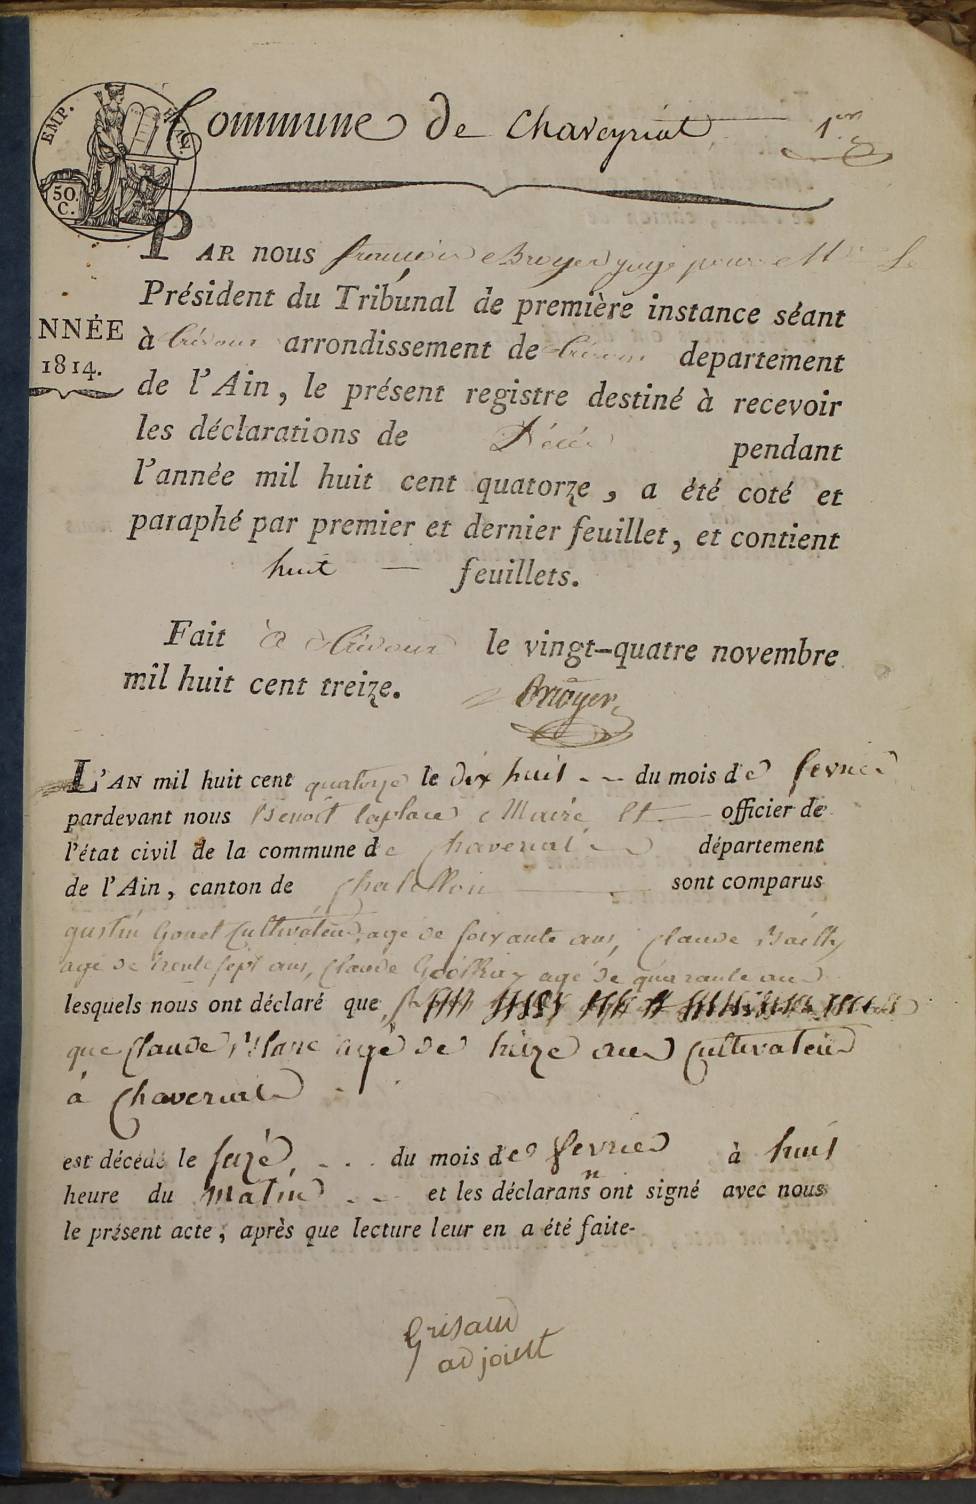 Commune de Chaveyriat 1er
EMP. FRAN.
50. C.
PAR nous francois Broyer juge pour Mr Le
Président du Tribunal de première instance séant
NNÉE
1814.
à Trévoux arrondissement de Trévoux departement
de l'Ain, le présent registre destiné à recevoir
les déclarations de Décès pendant
l'année mil huit cent quatorze, a été coté et
paraphé par premier et dernier feuillet, et contient
huit — feuillets.
Fait à Trévoux le vingt-quatre novembre
mil huit cent treize. Broyer
L'AN mil huit cent quatorze le dix huit du mois de fevrier
pardevant nous Benoit laplace Maire Et officier de
l'état civil de la commune de Chaveriat département
de l'Ain, canton de Chatillon sont comparus
gustin Gonet Cultivateur, agé de soixante ans, Claude Bailly
agé de trente sept ans, Claude agé de quarante ans
lesquels nous ont déclaré que
que Claude Blanc agé de treize ans Cultivateur
à Chaveriat
est décédé le seize du mois de fevrier à huit
heure du matin et les déclarans n ont signé avec nous
le présent acte, après que lecture leur en a été faite-
Grisaud
adjoint